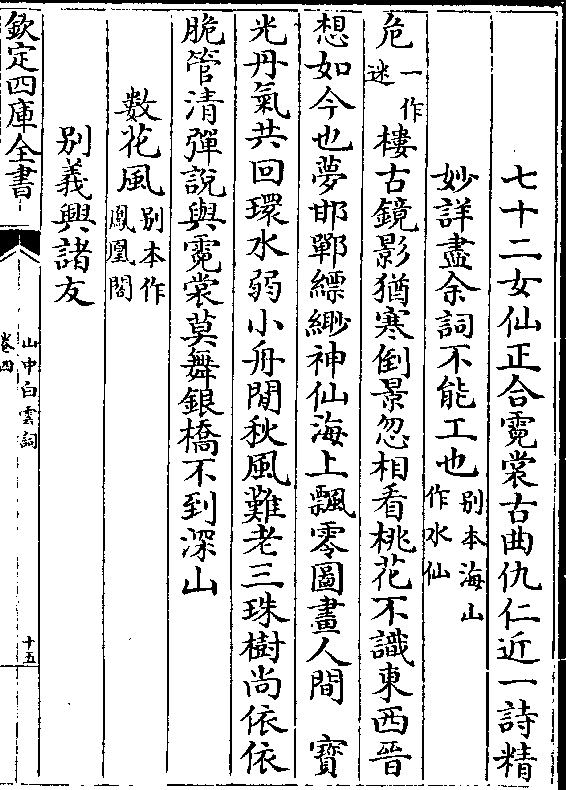 七十二女仙正合霓裳古曲仇仁近一詩精
妙詳盡余詞不能工也别本海山作水仙
危一作迷樓古鏡影猶寒倒景忽相看桃花不識東西晉
想如今也夢邯鄲縹緲神仙海上飄零圖畫人間　寳
光丹氣共回環水弱小舟閒秋風難老三珠樹尚依依
脆管清彈說與霓裳莫舞銀橋不到深山
數花風别本作鳳凰閣
别義興諸友
欽定四庫全書
山中白雲詞
卷四
十五